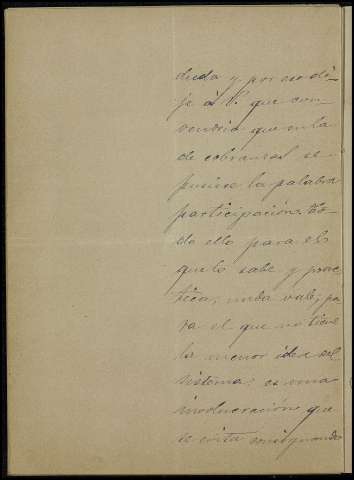 duda y por eso di-
je á V. que con-
vendria que en la
de cobranzas se
pusiese la palabra
participación. To-
do ello para el
que lo sabe y prac-
tica, nada vale; pa
ra el que no tiene
la menor idea del
sistema, es una
involucración que
se evita consignando